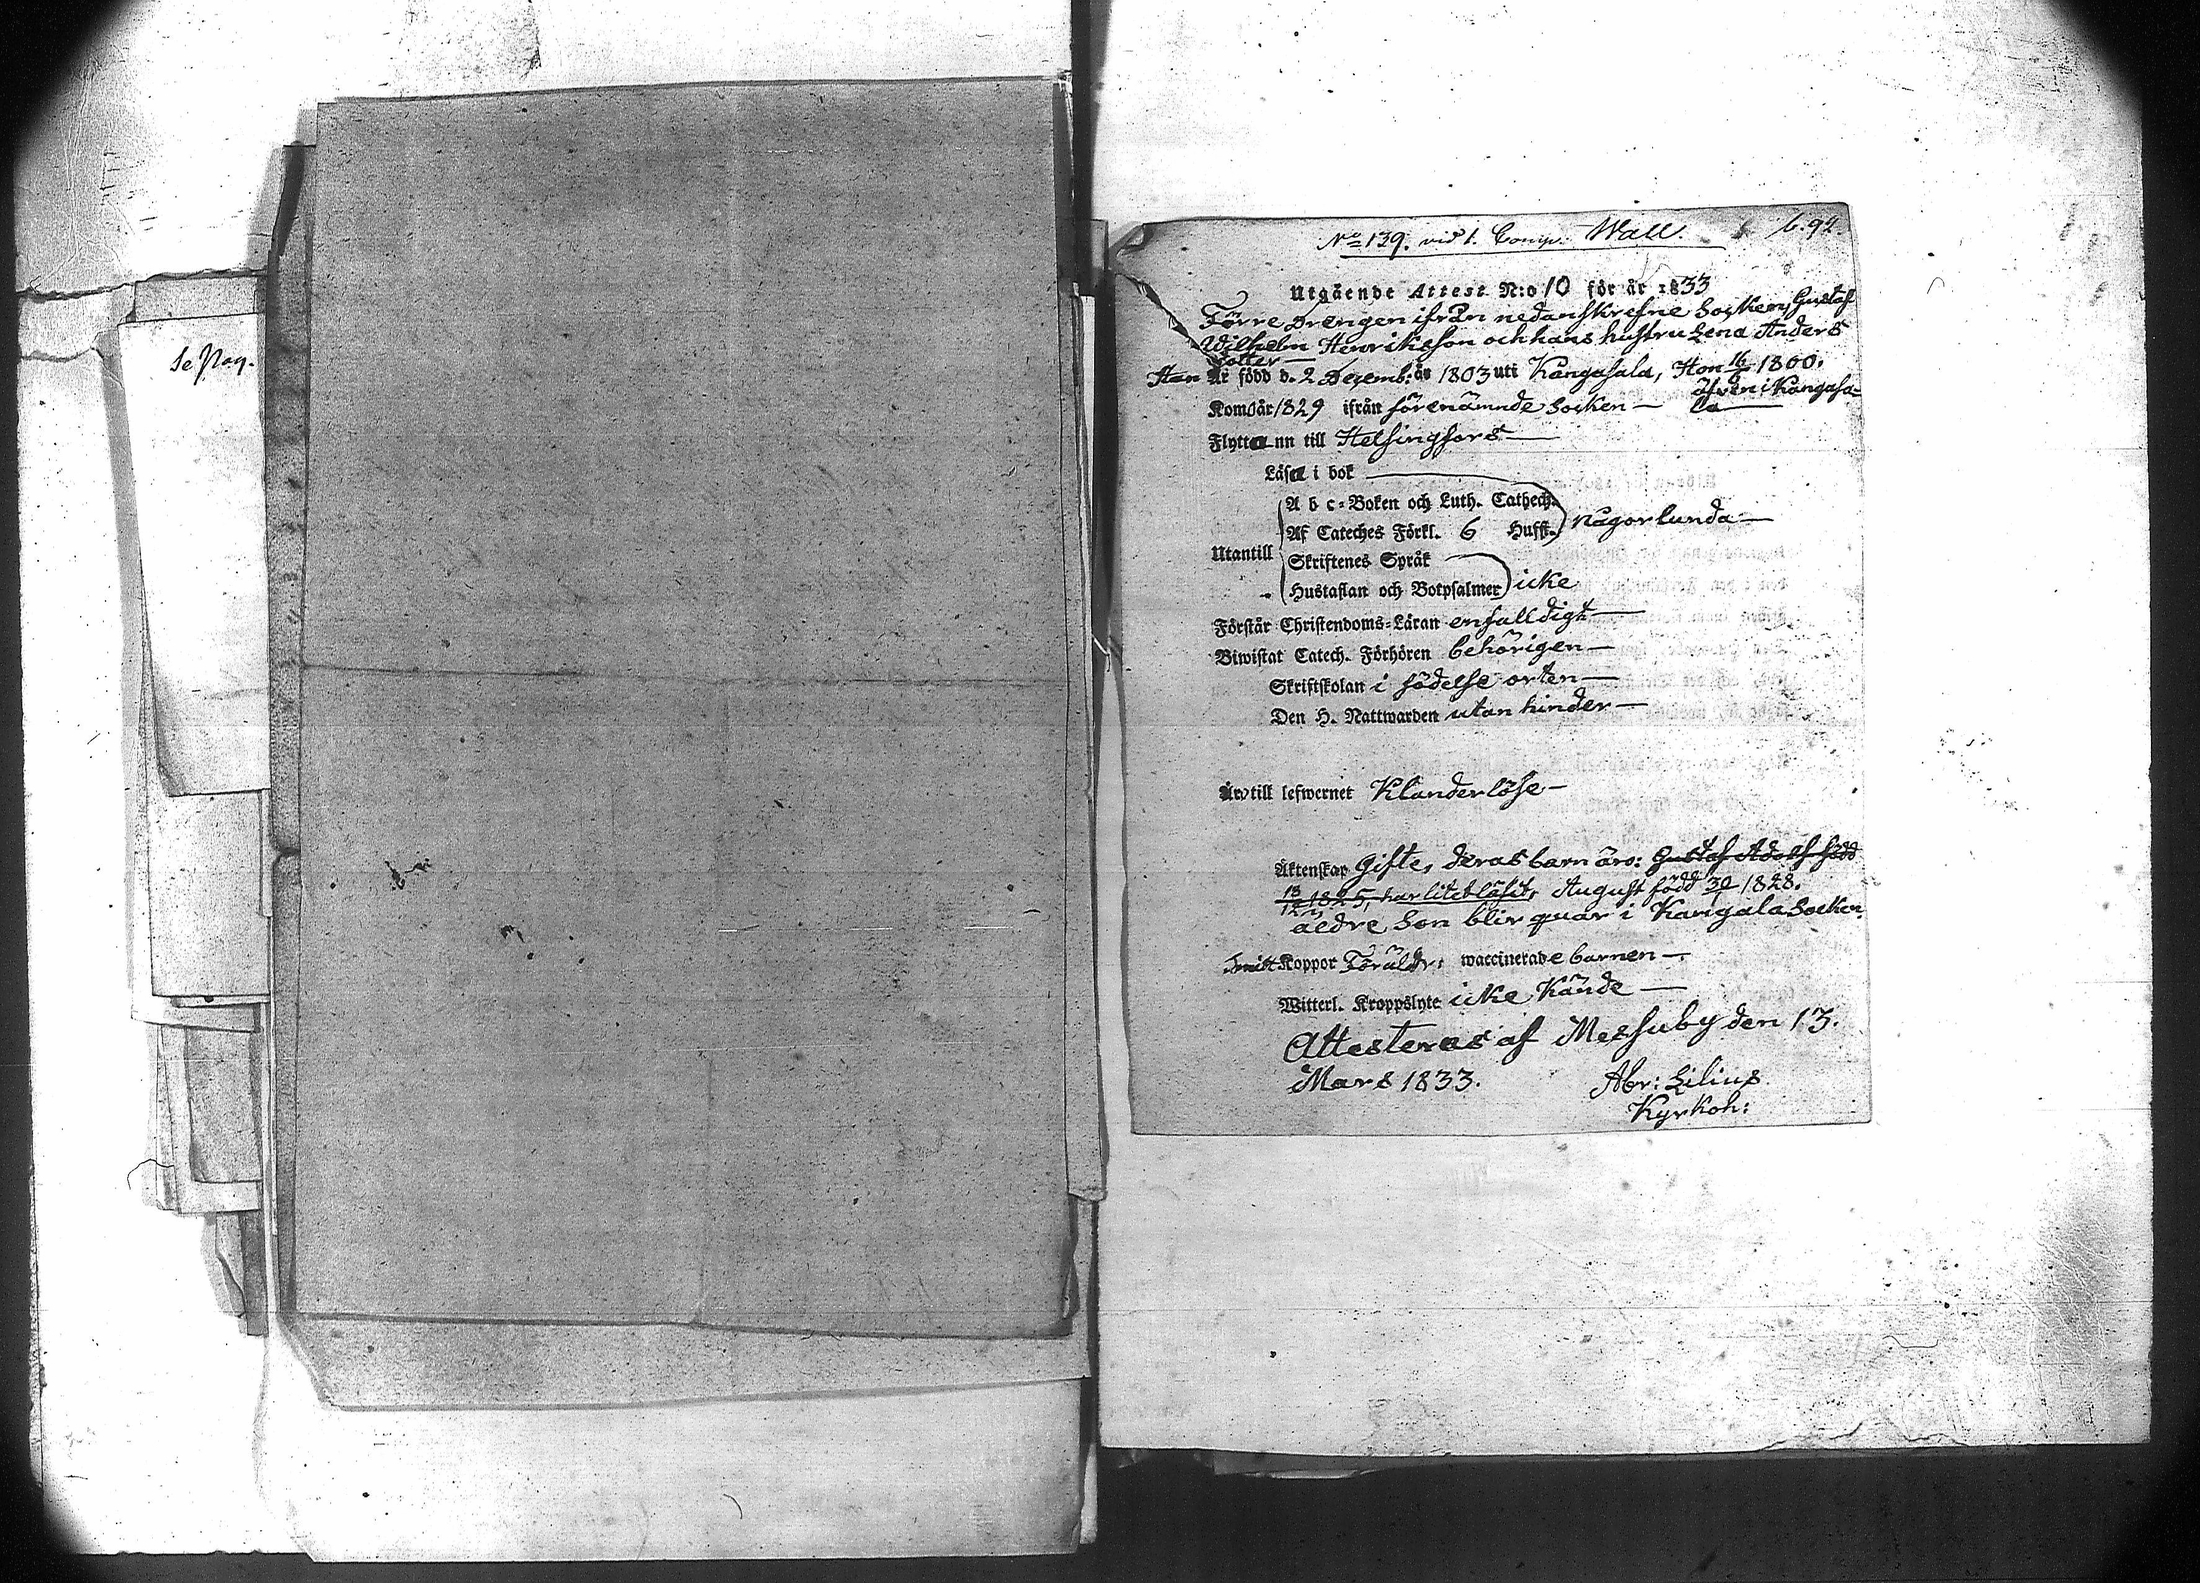 Se Pag.
No 139. vid 1. Comp. Wall. 6.94.
Utgående Attest N:o 10 för år 1833
Förre Drengen ifrån nedanskrefne Socken, Gustaf
Wilhelm Henriksson och hans hustru Lena Anders
dotter —
Han Är född d. 2 Dezemb: år 1803 uti Kangasala, Hon 16/6 1800.
Kom år 1829 ifrån förenämnde Socken — äfven i Kangasa-
la —
Flytta nn till Helsingfors —
Läsa i bok
A b c-Boken och Luth. Cathech.
Af Cateches Förkl. 6 Hufst. någorlunda —
Utantill
Skriftenes Språk
Hustaflan och Botpsalmer icke
Förstår Christendoms-Läran enfalldigt —
Biwistat Catech. Förhören behörigen —
Skriftskolan i födelse orten —
Den H. Nattwarden utan hinder —
Äro till lefwernet Klanderlöse —
Äktenskap Gifte, deras barn äro: Gustaf Adolf född
13/12 1825, har litet läsit, August född 30/1 1828.
äldre Son blir quar i Kangala Socken.
Koppor Föräldr: waccinerade barnen —
Witterl. Kroppslyte icke Kände —
Attesteras af Messuby den 13.
Mars 1833. Abr: Lilius
Kyrkoh: